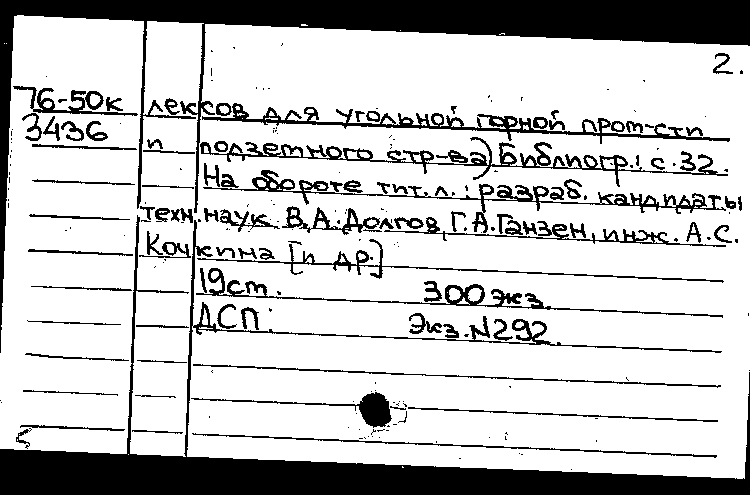 2.
76-50к лексов для угольной горной пром-сти
3436 и подземного стр-ва) Библиогр.: с.32.
На обороте тит.л.: разраб. кандидаты
техн. наук В.А. Долгов, Г.А. Ганзен, инж. А.С.
Кочкина [и др.]
19см. 300 экз.
ДСП: Экз.N292.